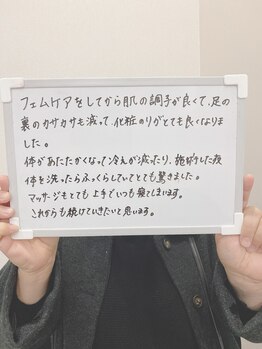 フェムケアをしてから肌の調子が良くて、足の
裏のカサカサも減って、化粧のりがとても良くなりま
した。
体があたたかくなって冷えが減ったり、施術した夜
体を洗ったらふっくらしていてとても驚きました。
マッサージもとても上手でいつも寝てしまいます。
これからも続けていきたいと思います。